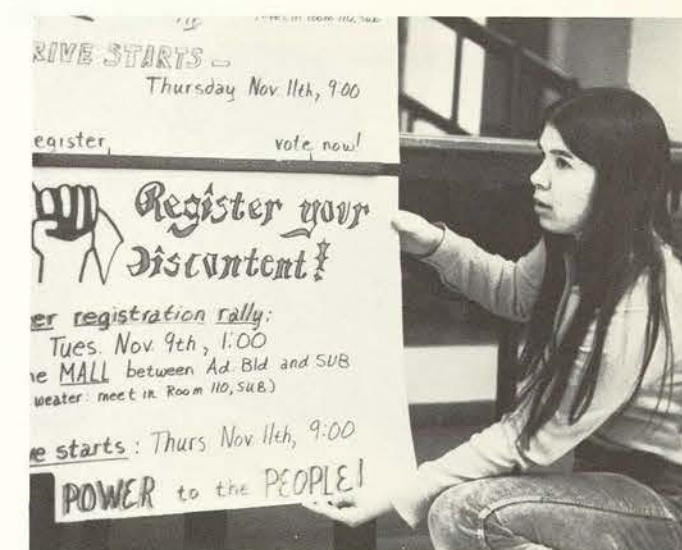 meet in room 110, SUB
RIVE STARTS —
Thursday Nov. 11th, 9:00
egister,
vote now!
Register your
Discontent!
er registration rally:
Tues. Nov. 9th, 1:00
e MALL between Ad. Bld and SUB
weater: meet in Room 110, SUB)
e starts: Thurs Nov. 11th, 9:00
POWER to the PEOPLE!